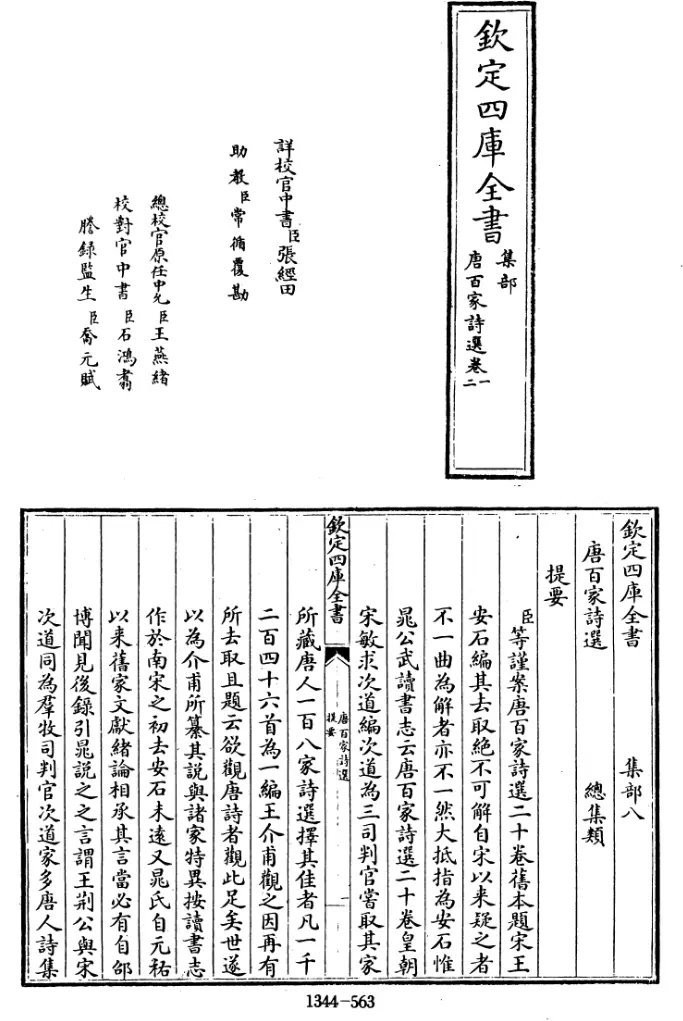 欽定四庫全書
集部
唐百家詩選卷一
二
詳校官中書臣張經田
助教臣常循覆勘
總校官原任中允臣王燕緒
校對官中書臣石鴻翥
謄錄監生臣喬元賦
欽定四庫全書 集部八
唐百家詩選 總集類
提要
臣等謹案唐百家詩選二十卷舊本題宋王
安石編其去取絶不可解自宋以来疑之者
不一曲為解者亦不一然大抵指為安石惟
晁公武讀書志云唐百家詩選二十卷皇朝
宋敏求次道編次道為三司判官嘗取其家
欽定四庫全書
唐百家詩選
提要
所藏唐人一百八家詩選擇其佳者凡一千
二百四十六首為一編王介甫觀之因再有
所去取且題云欲觀唐詩者觀此足矣世遂
以為介甫所纂其說與諸家特異按讀書志
作於南宋之初去安石未遠又晁氏自元祐
以来舊家文獻緒論相承其言當必有自邵
博聞見後錄引晁說之之言謂王荆公與宋
次道同為羣牧司判官次道家多唐人詩集
1344-563